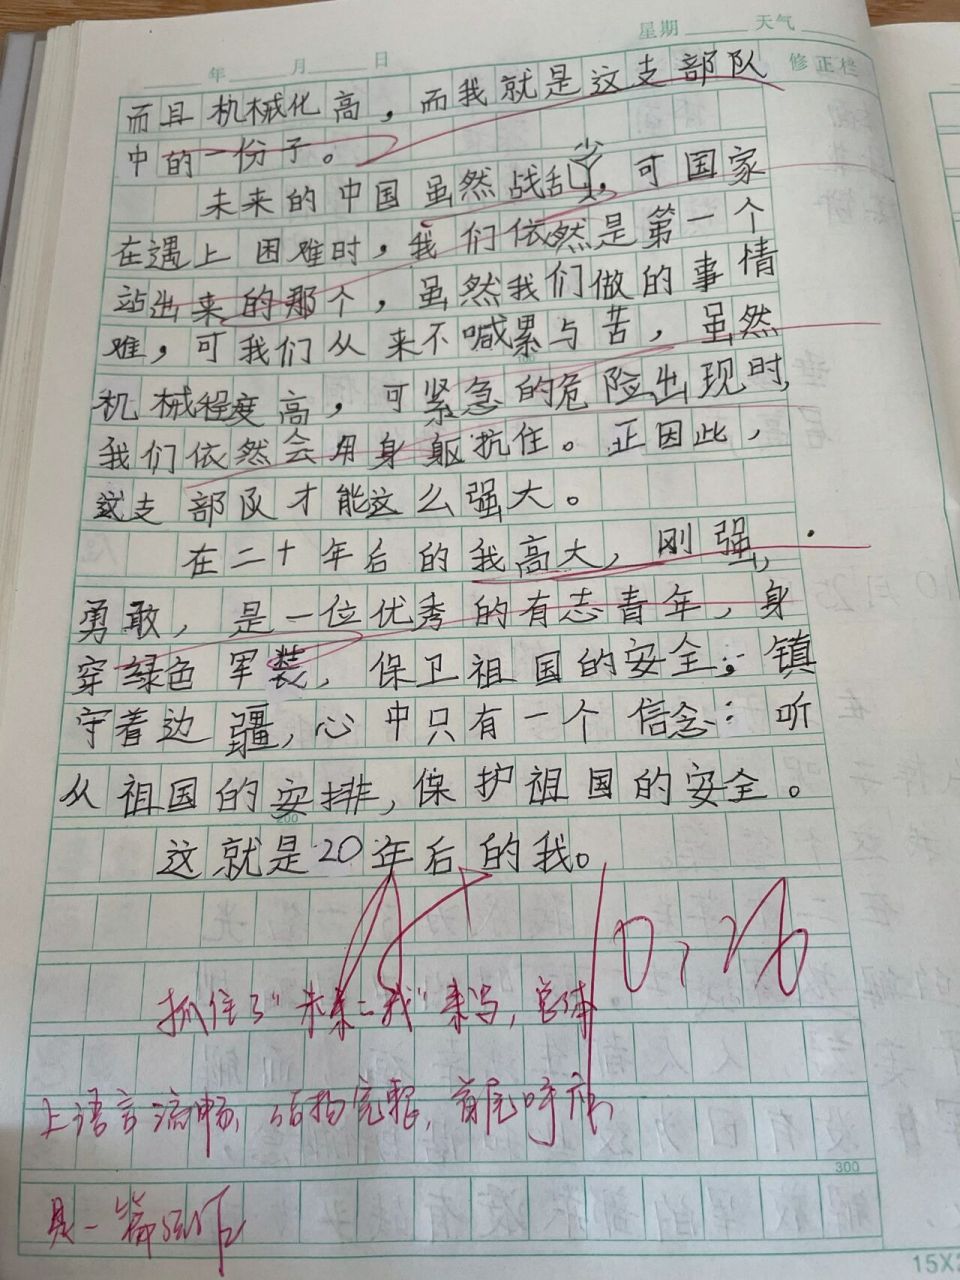 星期 天气
年 月 日
修正栏
而且机械化高，而我就是这支部队
中的一份子。
未来的中国虽然战乱少，可国家
在遇上困难时，我们依然是第一个
站出来的那个，虽然我们做的事情
难，可我们从来不喊累与苦，虽然
机械程度高，可紧急的危险出现时，
我们依然会用身躯抗住。正因此，
这支部队才能这么强大。
在二十年后的我高大，刚强，
勇敢，是一位优秀的有志青年，身
穿绿色军装，保卫祖国的安全；镇
守着边疆，心中只有一个信念：听
从祖国的安排，保护祖国的安全。
200
这就是20年后的我。
10.26
抓住了"未来之我"来写，总体
上语言流畅，结构完整，首尾呼应，
是一篇
300
15X2